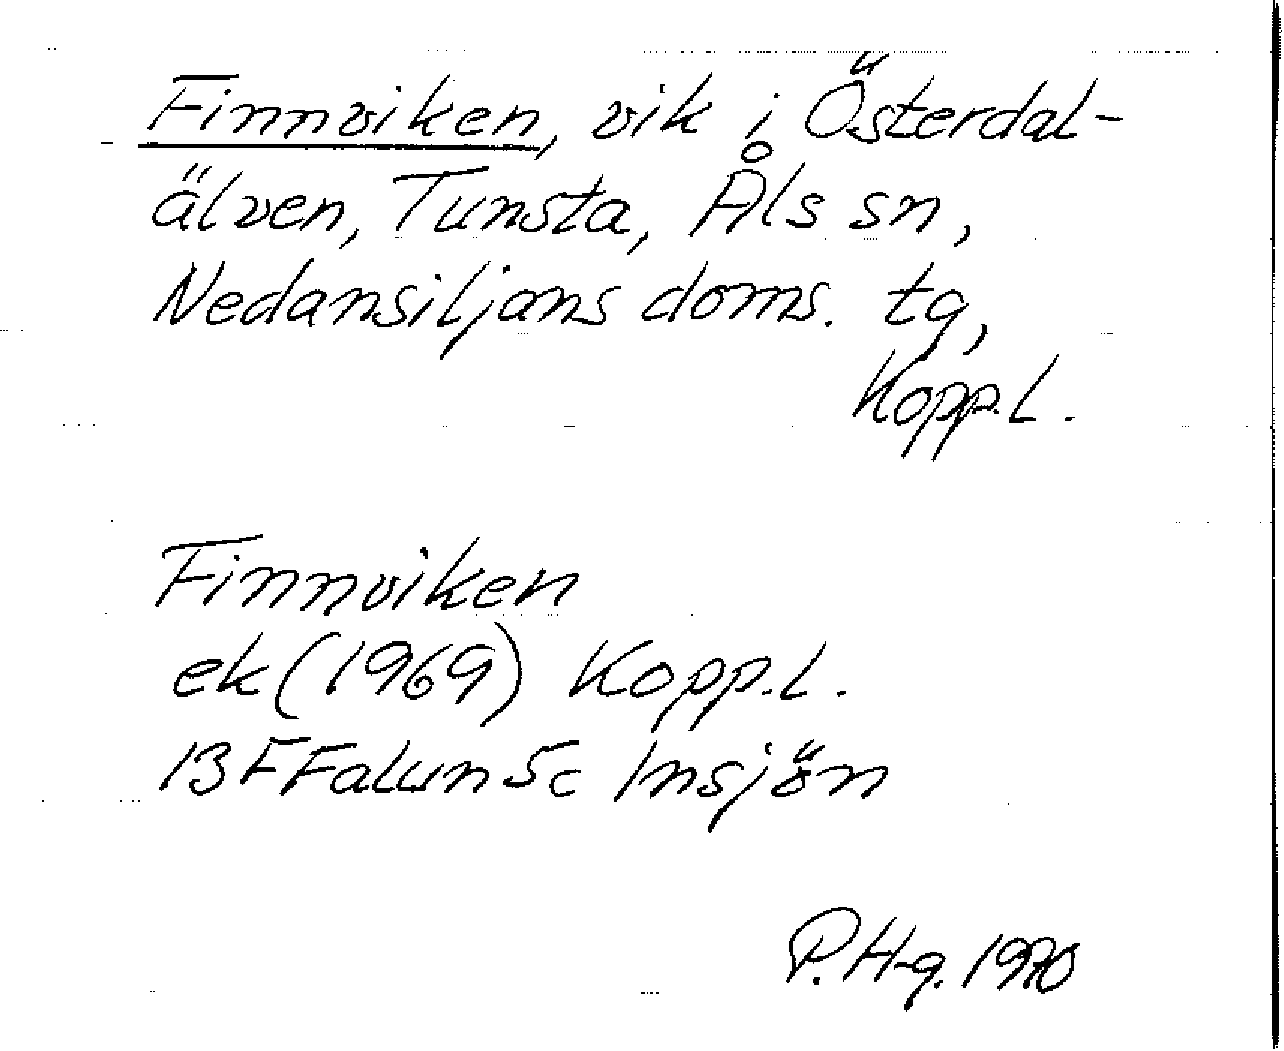 Finnviken, vik i Österdal-
älven, Tunsta, Åls sn,
Nedansiljans doms. tg,
Kopp.l.
Finnviken
ek (1969) Kopp.l.
13F Falun 5c Insjön
P.H-g. 1970